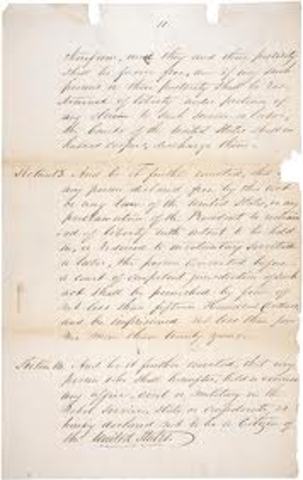 11.
therefrom, and they and their posterity
shall be forever free, And if any such
persons or their posterity shall be res-
trained of liberty under pretence of
any claim to such service or labor,
the Courts of the United States shall on
habeas corpus, discharge them.
Section 13. And be it further enacted, that if
any person declared free by this act
or any law of the United States, or any
proclamation of the President be restrain-
ed of liberty with intent to be held
in, or reduced to involuntary servitude
or labor, the person convicted before
a court of competent jurisdiction of such
act shall be punished by fine of
not less than fifteen Hundred Dollars
and be imprisoned not less than five
nor more than twenty years.
Section 14. And be it further enacted, that every
person who shall hereafter hold or exercise
any office, civil or military in the
Rebel Service, State or Confederate, is
hereby declared not to be a Citizen of
the United States.